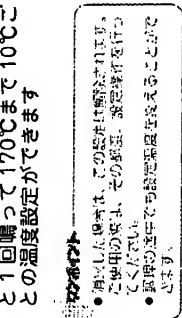 と1回鳴って170℃まで10℃ご
との温度設定ができます
ワンポイント
● 消火した場合は、この設定は解除されます。
ご使用の際は、その都度、設定操作を行っ
てください。
● 調理の途中でも設定温度を変えることがで
きます。